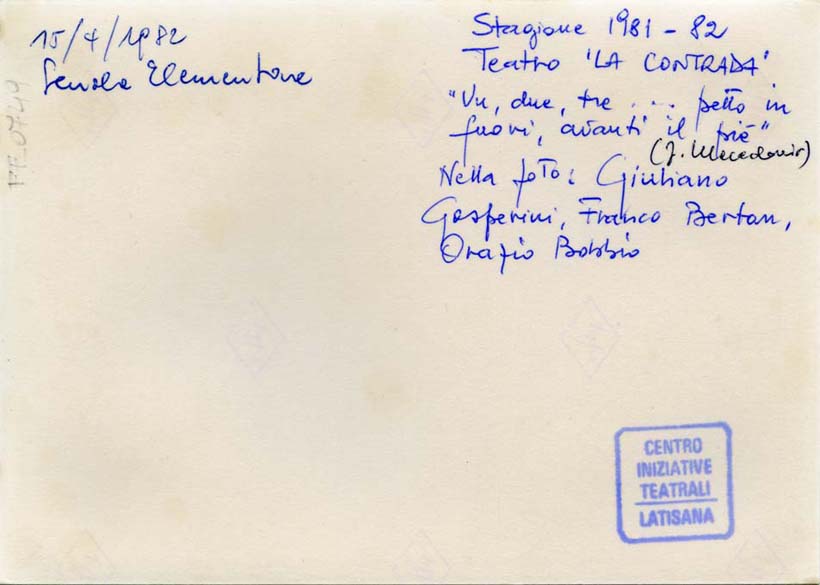 15/4/1982
Scuola Elementare
FF_0749
Stagione 1981 - 82
Teatro 'LA CONTRADA'
"Un, due, tre .... petto in
fuori, avanti il piè"
(F. Macedonio)
Nella foto: Giuliano
Gasperini, Franco Bertan,
Orazio Bobbio
CENTRO
INIZIATIVE
TEATRALI
LATISANA